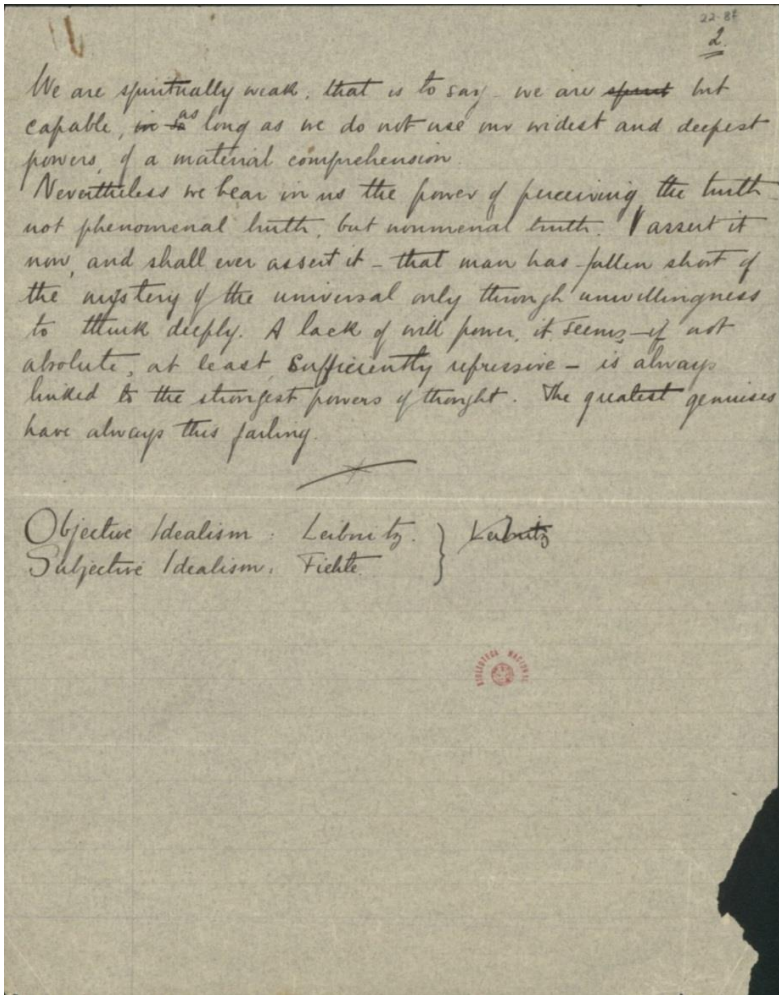 22-87
2.
We are spiritually weak, that is to say - we are spirit but
capable, in so as long as we do not use our widest and deepest
powers, of a material comprehension.
Nevertheless we bear in us the power of perceiving the truth
not phenomenal truth, but noumenal truth. I assert it
now, and shall ever assert it - that man has fallen short of
the mystery of the universal only through unwillingness
to think deeply. A lack of will power, it seems - if not
absolute, at least sufficiently repressive - is always
linked to the strongest powers of thought. The greatest geniuses
have always this failing.
Objective Idealism: Leibnitz. } Leibnitz
Subjective Idealism: Fichte.
BIBLIOTECA NACIONAL